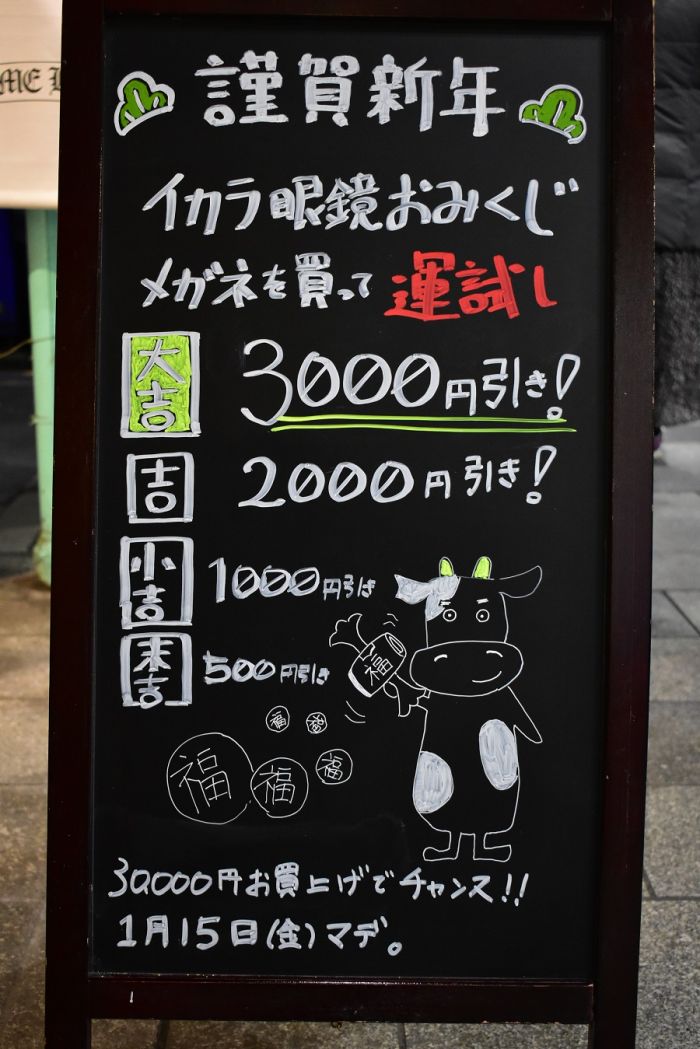 謹賀新年
イカラ眼鏡おみくじ
メガネを買って運試し
大吉 3000円引き!
吉 2000円引き!
小吉 1000円引き
末吉 500円引き
福
福 福
福 福 福
30,000円お買上げでチャンス!!
1月15日(金)マデ。